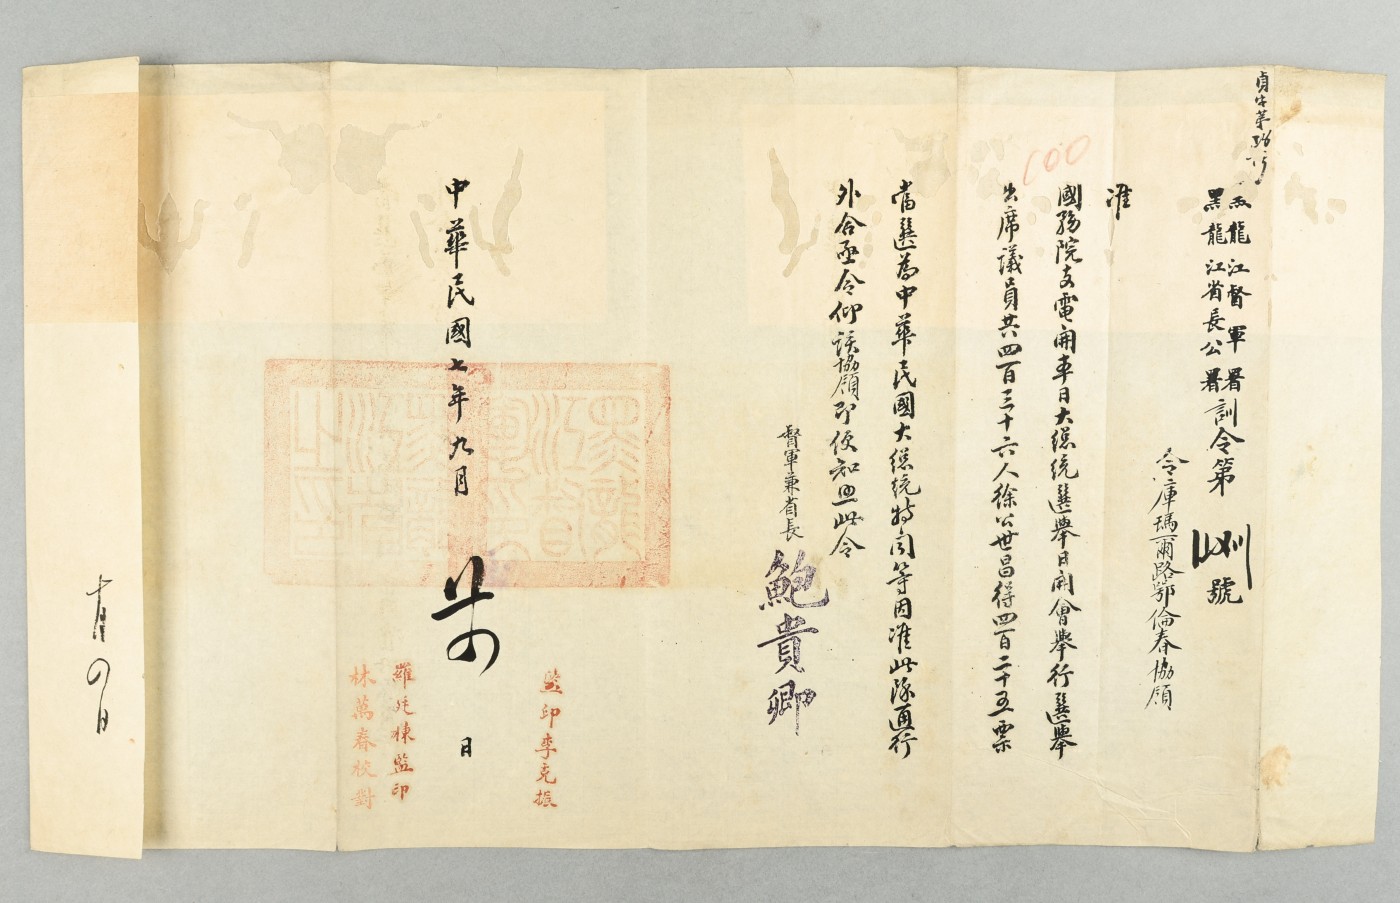 黑龍江督軍署
黑龍江省長公署
訓令第
號
令庫瑪爾路鄂倫春協領
准
100
國務院支電開本日大總統選舉日開會舉行選舉
出席議員共四百三十六人徐公世昌得四百二十五票
當選為中華民國大總統特聞等因准此除通行
外合亟令仰該協領即便知照此令
督軍兼省長
鮑貴卿
中華民國七年九月
日
監印李克振
羅 棟監印
林萬春校對
十月 日